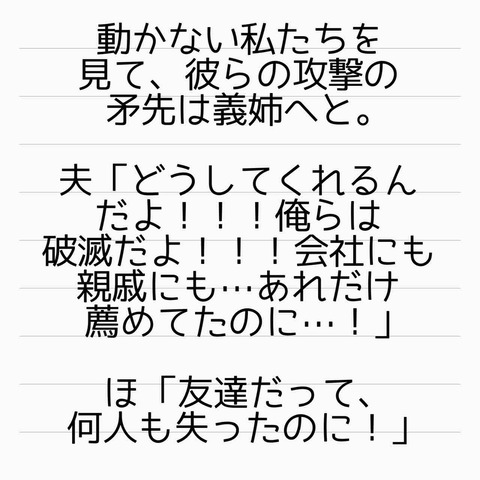 動かない私たちを
見て、彼らの攻撃の
矛先は義姉へと。
夫「どうしてくれるん
だよ！！！俺らは
破滅だよ！！！会社にも
親戚にも…あれだけ
薦めてたのに…！」
ほ「友達だって、
何人も失ったのに！」